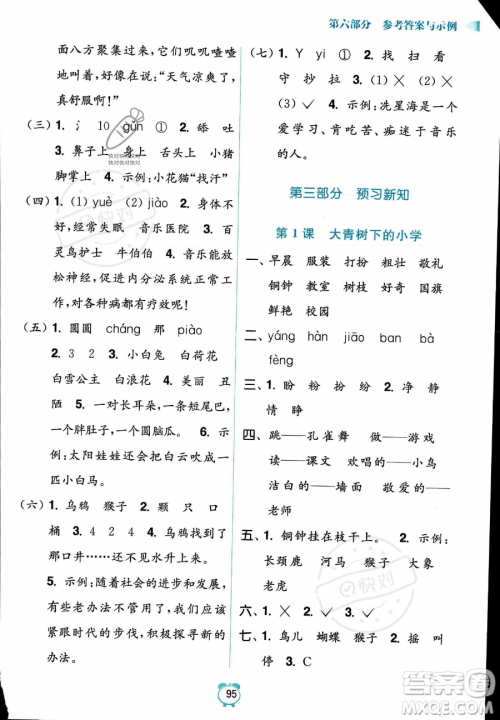 第六部分 参考答案与示例
面八方聚集过来，它们叽叽喳喳
地说，好像在说：“天气凉爽了，
真舒服啊！”
（三）1. 氵 10 gǔn ① 2. 舔 吐
3. 鼻子上 身上 舌头上 小猪
的脚掌上 4. 示例：小花猫“找汗”
（四）1. (1) yuè (2) jiào 2. 身体不
好，经常失眠 音乐医院 3. 百
灵鸟护士 4. 示例：音乐能放松
心情，使人体各系统正常工作，
对各种病都有疗效！
（五）1. 圆圆 cháng 那 piào
2. 3 2 3. 小白兔 白荷花
白雪公主 白玉盘 4. 美丽 丑
陋 5. 一对长耳朵，一条短尾巴，
一个胖肚子，一个圆脑瓜。 6. 示
例：太阳娃娃准是把它当成了一
匹小白马。
（六）1. 乌鸦 猴子 2. 颗 只 口
桶 3. 3 4 2 4 4. 乌鸦来到
那口井……水升上来了。
5. 示例：社会在进步和发展，
有些老办法已不再适用，我们应该
紧跟时代的步伐，积极寻求新的
办法。
（七）1. Y yi ① 2. (1) 看
守 抄 拉 ② (2) ③ 3. (1) ×
(2) ✓ 4. 示例：冼星海是一个
爱学习、肯吃苦、痴迷于音乐
的人。
第三部分 预习新知
第1课 大青树下的小学
一、早晨 服装 打扮 粗壮 敬礼
铜钟 教室 树枝 好奇 国旗
鲜艳 校园
二、yáng hàn jiāo bàn bà
fèng
三、1. 盼 粉 扮 纷 2. 情 清
请 睛
四、跳——孔雀舞 做——游戏
读——课文 可爱的——小鸟
洁白的——墙面 敬爱的——
老师
五、1. 铜钟挂在树上。 2. 示例：
长颈鹿 河马 猴子 大象
老虎
六、1. × 2. ✓ 3. × 4. ×
七、1. 鸟儿 蝴蝶 猴子 2. 摇 叫
停 3. C
95
快对
答案圈
MXQE.COM